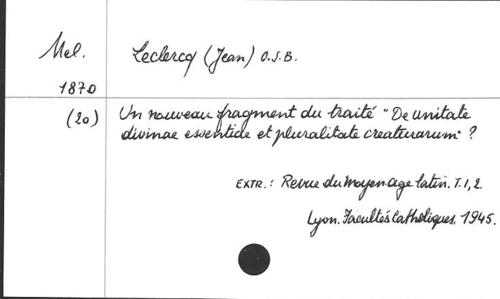 Mel. Leclercq (Jean) O.S.B.
1870
(20) Un nouveau fragment du traité "De unitate
divinae essentiae et pluralitate creaturarum" ?
EXTR.: Revue du Moyen age latin. T.1,2.
Lyon. Facultés Catholiques. 1945.